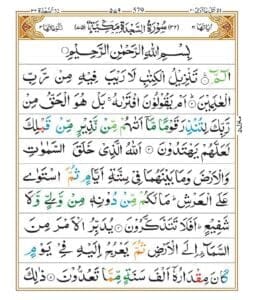 سُوْرَةُ السَّجْدَةِ مَكِّيَّةٌ
بِسْمِ اللّٰهِ الرَّحْمٰنِ الرَّحِيْمِ
الٓمّٓ تَنْزِيْلُ الْكِتٰبِ لَا رَيْبَ فِيْهِ مِنْ رَّبِّ
الْعٰلَمِيْنَ اَمْ يَقُوْلُوْنَ افْتَرٰىهُ بَلْ هُوَ الْحَقُّ مِنْ
رَّبِّكَ لِتُنْذِرَ قَوْمًا مَّاۤ اَتٰىهُمْ مِّنْ نَّذِيْرٍ مِّنْ قَبْلِكَ
لَعَلَّهُمْ يَهْتَدُوْنَ اَللّٰهُ الَّذِيْ خَلَقَ السَّمٰوٰتِ
وَالْاَرْضَ وَمَا بَيْنَهُمَا فِيْ سِتَّةِ اَيَّامٍ ثُمَّ اسْتَوٰى
عَلَى الْعَرْشِ مَا لَكُمْ مِّنْ دُوْنِهٖ مِنْ وَّلِيٍّ وَّلَا
شَفِيْعٍ اَفَلَا تَتَذَكَّرُوْنَ يُدَبِّرُ الْاَمْرَ مِنَ
السَّمَآءِ اِلَى الْاَرْضِ ثُمَّ يَعْرُجُ اِلَيْهِ فِيْ يَوْمٍ
كَانَ مِقْدَارُهٗۤ اَلْفَ سَنَةٍ مِّمَّا تَعُدُّوْنَ ذٰلِكَ